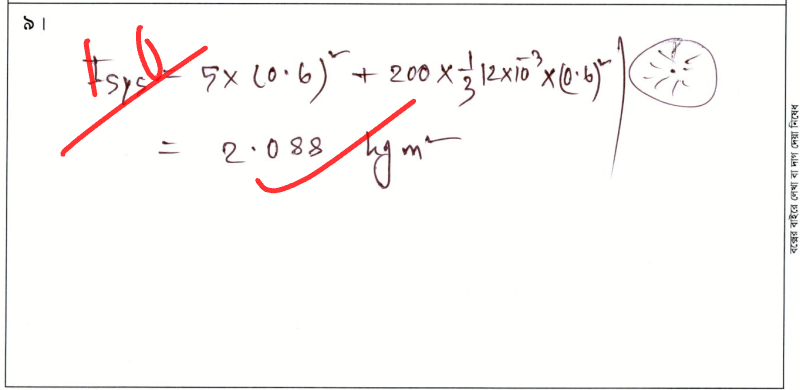 ৯।
10
I_sys = 5 × (0.6)² + 200 × 1/3 12×10⁻³ × (0.6)²
= 2.088 kg m²
বক্সের বাইরে লেখা বা দাগ দেয়া নিষেধ